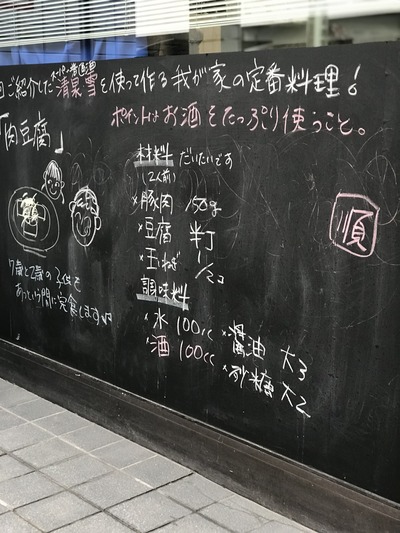 ご紹介した清泉雪を使って作る我が家の定番料理！
ポイントはお酒をたっぷり使うこと。
「肉豆腐」
材料 だいたいです
(2人前)
×豚肉 150g
×豆腐 半丁
×玉ねぎ 1/2コ
調味料
×水 100cc
×酒 100cc
×醤油 大3
×砂糖 大2
7歳と2歳の子供も
あっという間に完食します
順